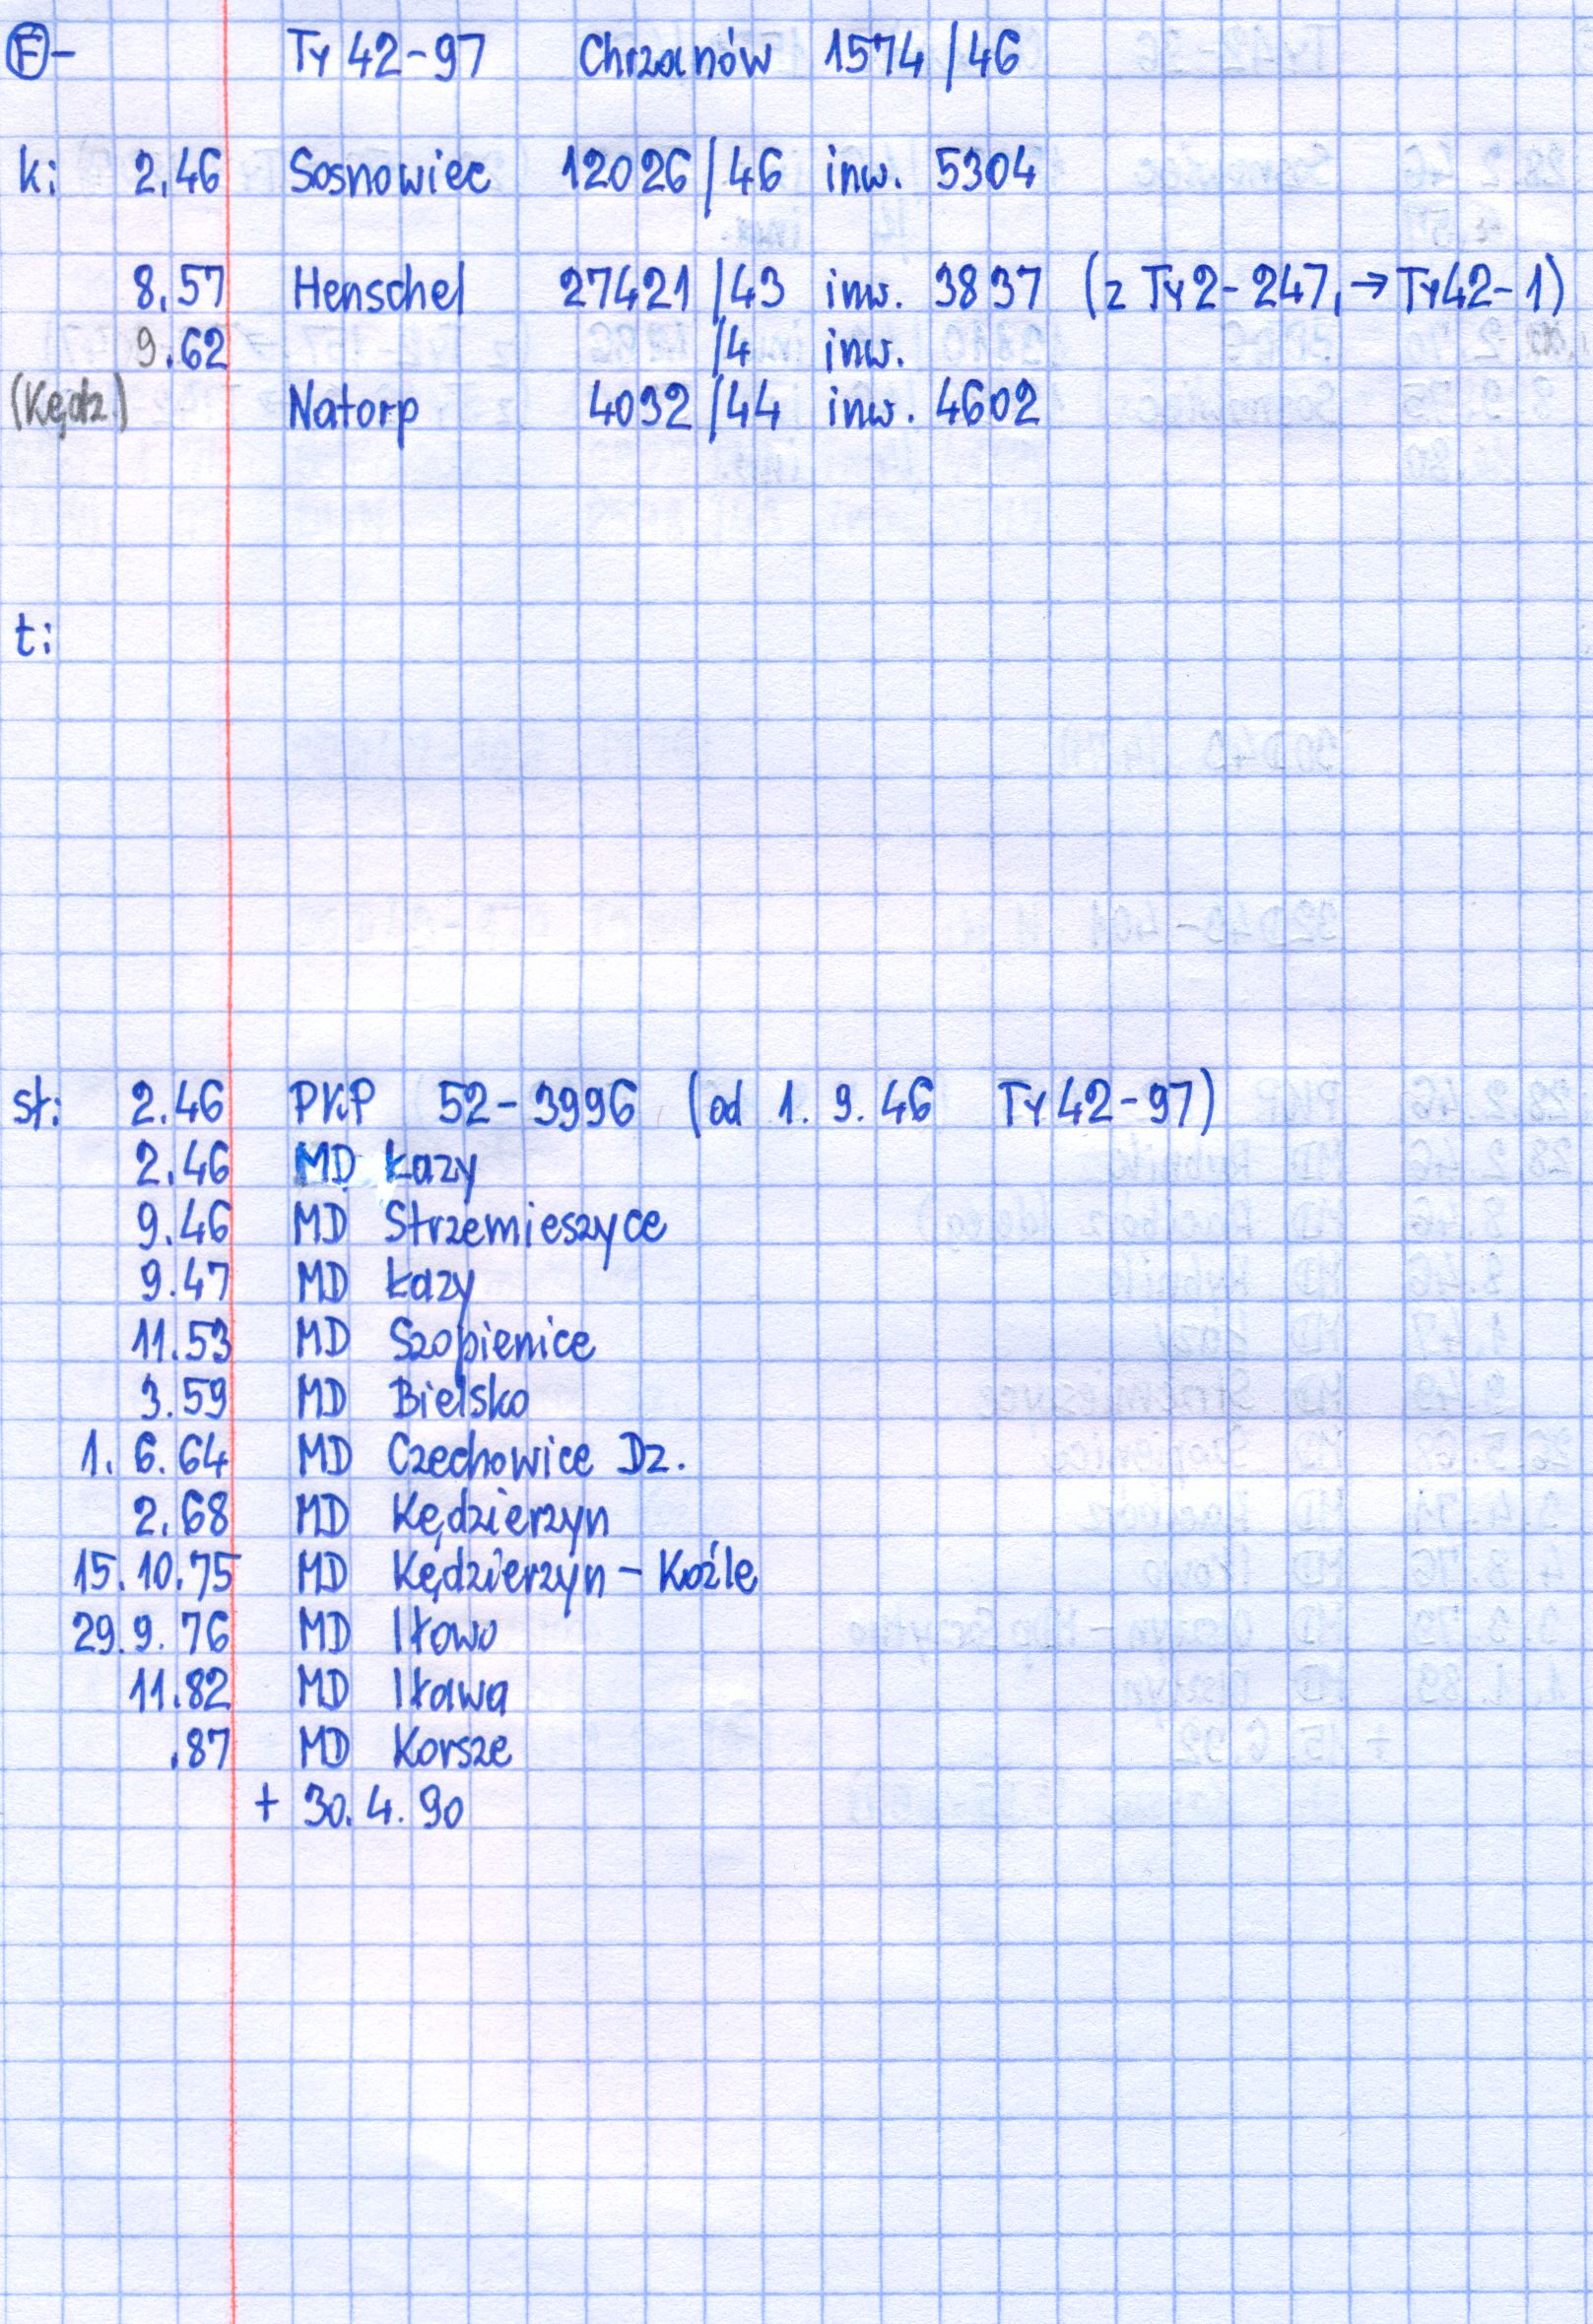 (F)- Ty 42-97 Chrzanów 1574/46
k: 2.46 Sosnowiec 12026/46 inw. 5304
8.57 Henschel 27421/43 inw. 3837 (z Ty2-247, → Ty42-1)
9.62 /4 inw.
(Kędz.) Natorp 4092/44 inw. 4602
t:
st: 2.46 PKP 52-3996 (od 1. 9. 46 Ty42-97)
2.46 MD Łazy
9.46 MD Strzemieszyce
9.47 MD Łazy
11.53 MD Szopienice
3.59 MD Bielsko
1. 6. 64 MD Czechowice Dz.
2.68 MD Kędzierzyn
15.10.75 MD Kędzierzyn - Koźle
29.9.76 MD Iłowo
11.82 MD Iława
.87 MD Korsze
+ 30.4.90